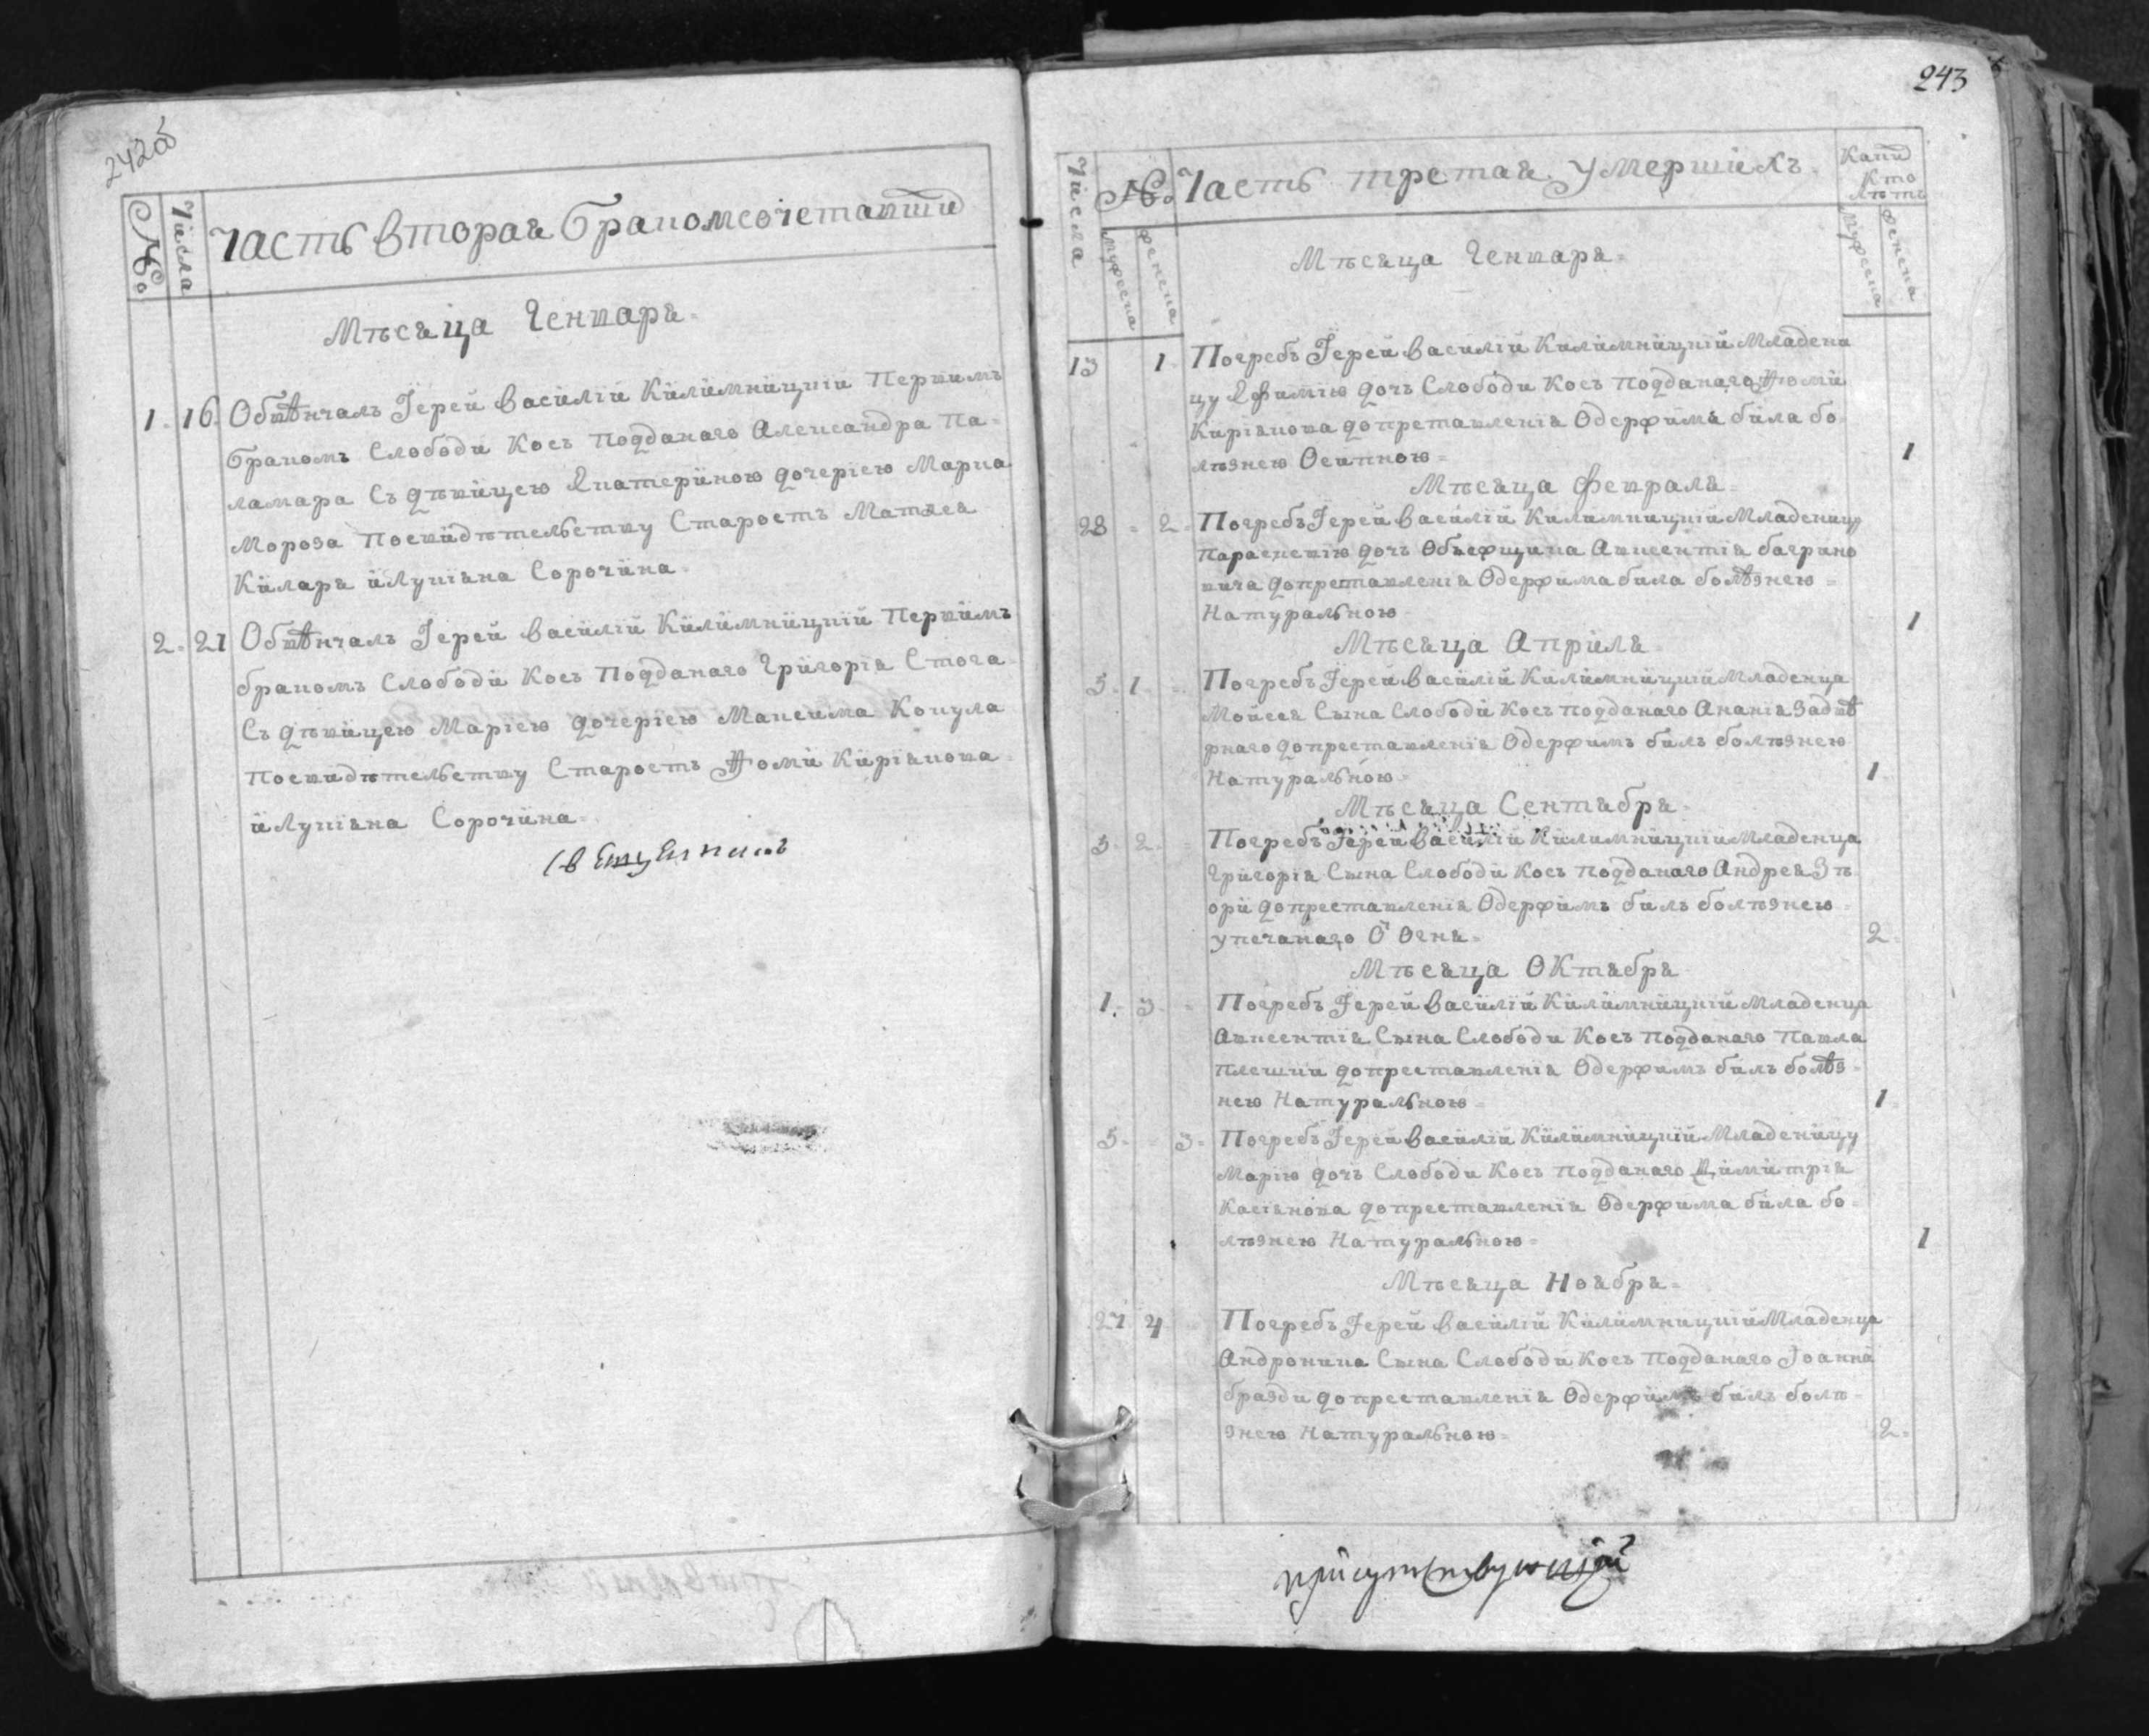 242об
№
Числа
Часть вторая бракомсочетавши
Мѣсяца Генваря
1. 16. Обвѣнчалъ Іерей Василій Килимницкій Первимъ
бракомъ Слободи Косъ Подданаго Александра Па=
ламара Съ дѣвицею Екатериною дочеріею Марка
Мороза Посвидѣтельству Старостъ Матвея
Киларя и Лукіяна Сорочина
2. 21 Обвѣнчалъ Іерей Василій Килимницкій Первимъ
бракомъ Слободи Косъ Подданаго Григорія Стога
Съ дѣвицею Маріею дочеріею Максима Коцула
Посвидѣтельству Старостъ Ѳоми Киріякова
и Лукіяна Сорочина
243
Числа
№
мужеска
женска
Часть третая умершихъ
Каких
Кто
Лѣтъ
мужеска
женска
Мѣсяца Генваря
13 1 Погребъ Іерей Василій Килимницкій Младени
цу Ефимію дочъ Слободи Косъ Подданаго Ѳоми
Киріякова допреставленія Одержима била бо
лѣзнею Осипною 1
Мѣсяца Февраля
28 2 Погребъ Іерей Василій Килимницкій Младеницу
Параскевію дочъ Объещика Авксентія багрино
вича допреставленія Одержима била болѣзнею
Натуральною 1
Мѣсяца Апріля
5 1 Погребъ Іерей Василій Килимницкій Младенца
Мойсея Сына Слободи Косъ Подданаго Ананія Задвѣ
рнаго допреставленія Одержимъ билъ болѣзнею
Натуральною 1
Мѣсяца Сентября
3 2 Погребъ Іерей Василій Килимницкій Младенца
Григорія Сына Слободи Косъ Подданаго Андрея Зѣ
ори допреставленія Одержимъ билъ болѣзнею
упечанаго Ѿ Огня 2
Мѣсяца Октября
1. 3 Погребъ Іерей Василій Килимницкій Младенца
Авксентія Сына Слободи Косъ Подданаго Павла
Плешки допреставленія Одержимъ билъ болѣз
нею Натуральною 1
5 3 Погребъ Іерей Василій Килимницкій Младеницу
Марію дочъ Слободи Косъ Подданаго Димитрія
Касіянова допреставленія Одержима била бо
лѣзнею Натуральною 1
Мѣсяца Ноября
27 4 Погребъ Іерей Василій Килимницкій Младенца
Андроника Сына Слободи Косъ Подданаго Іоанна
бразди допреставленія Одержимъ билъ болѣ
знею Натуральною 2
присутствующій